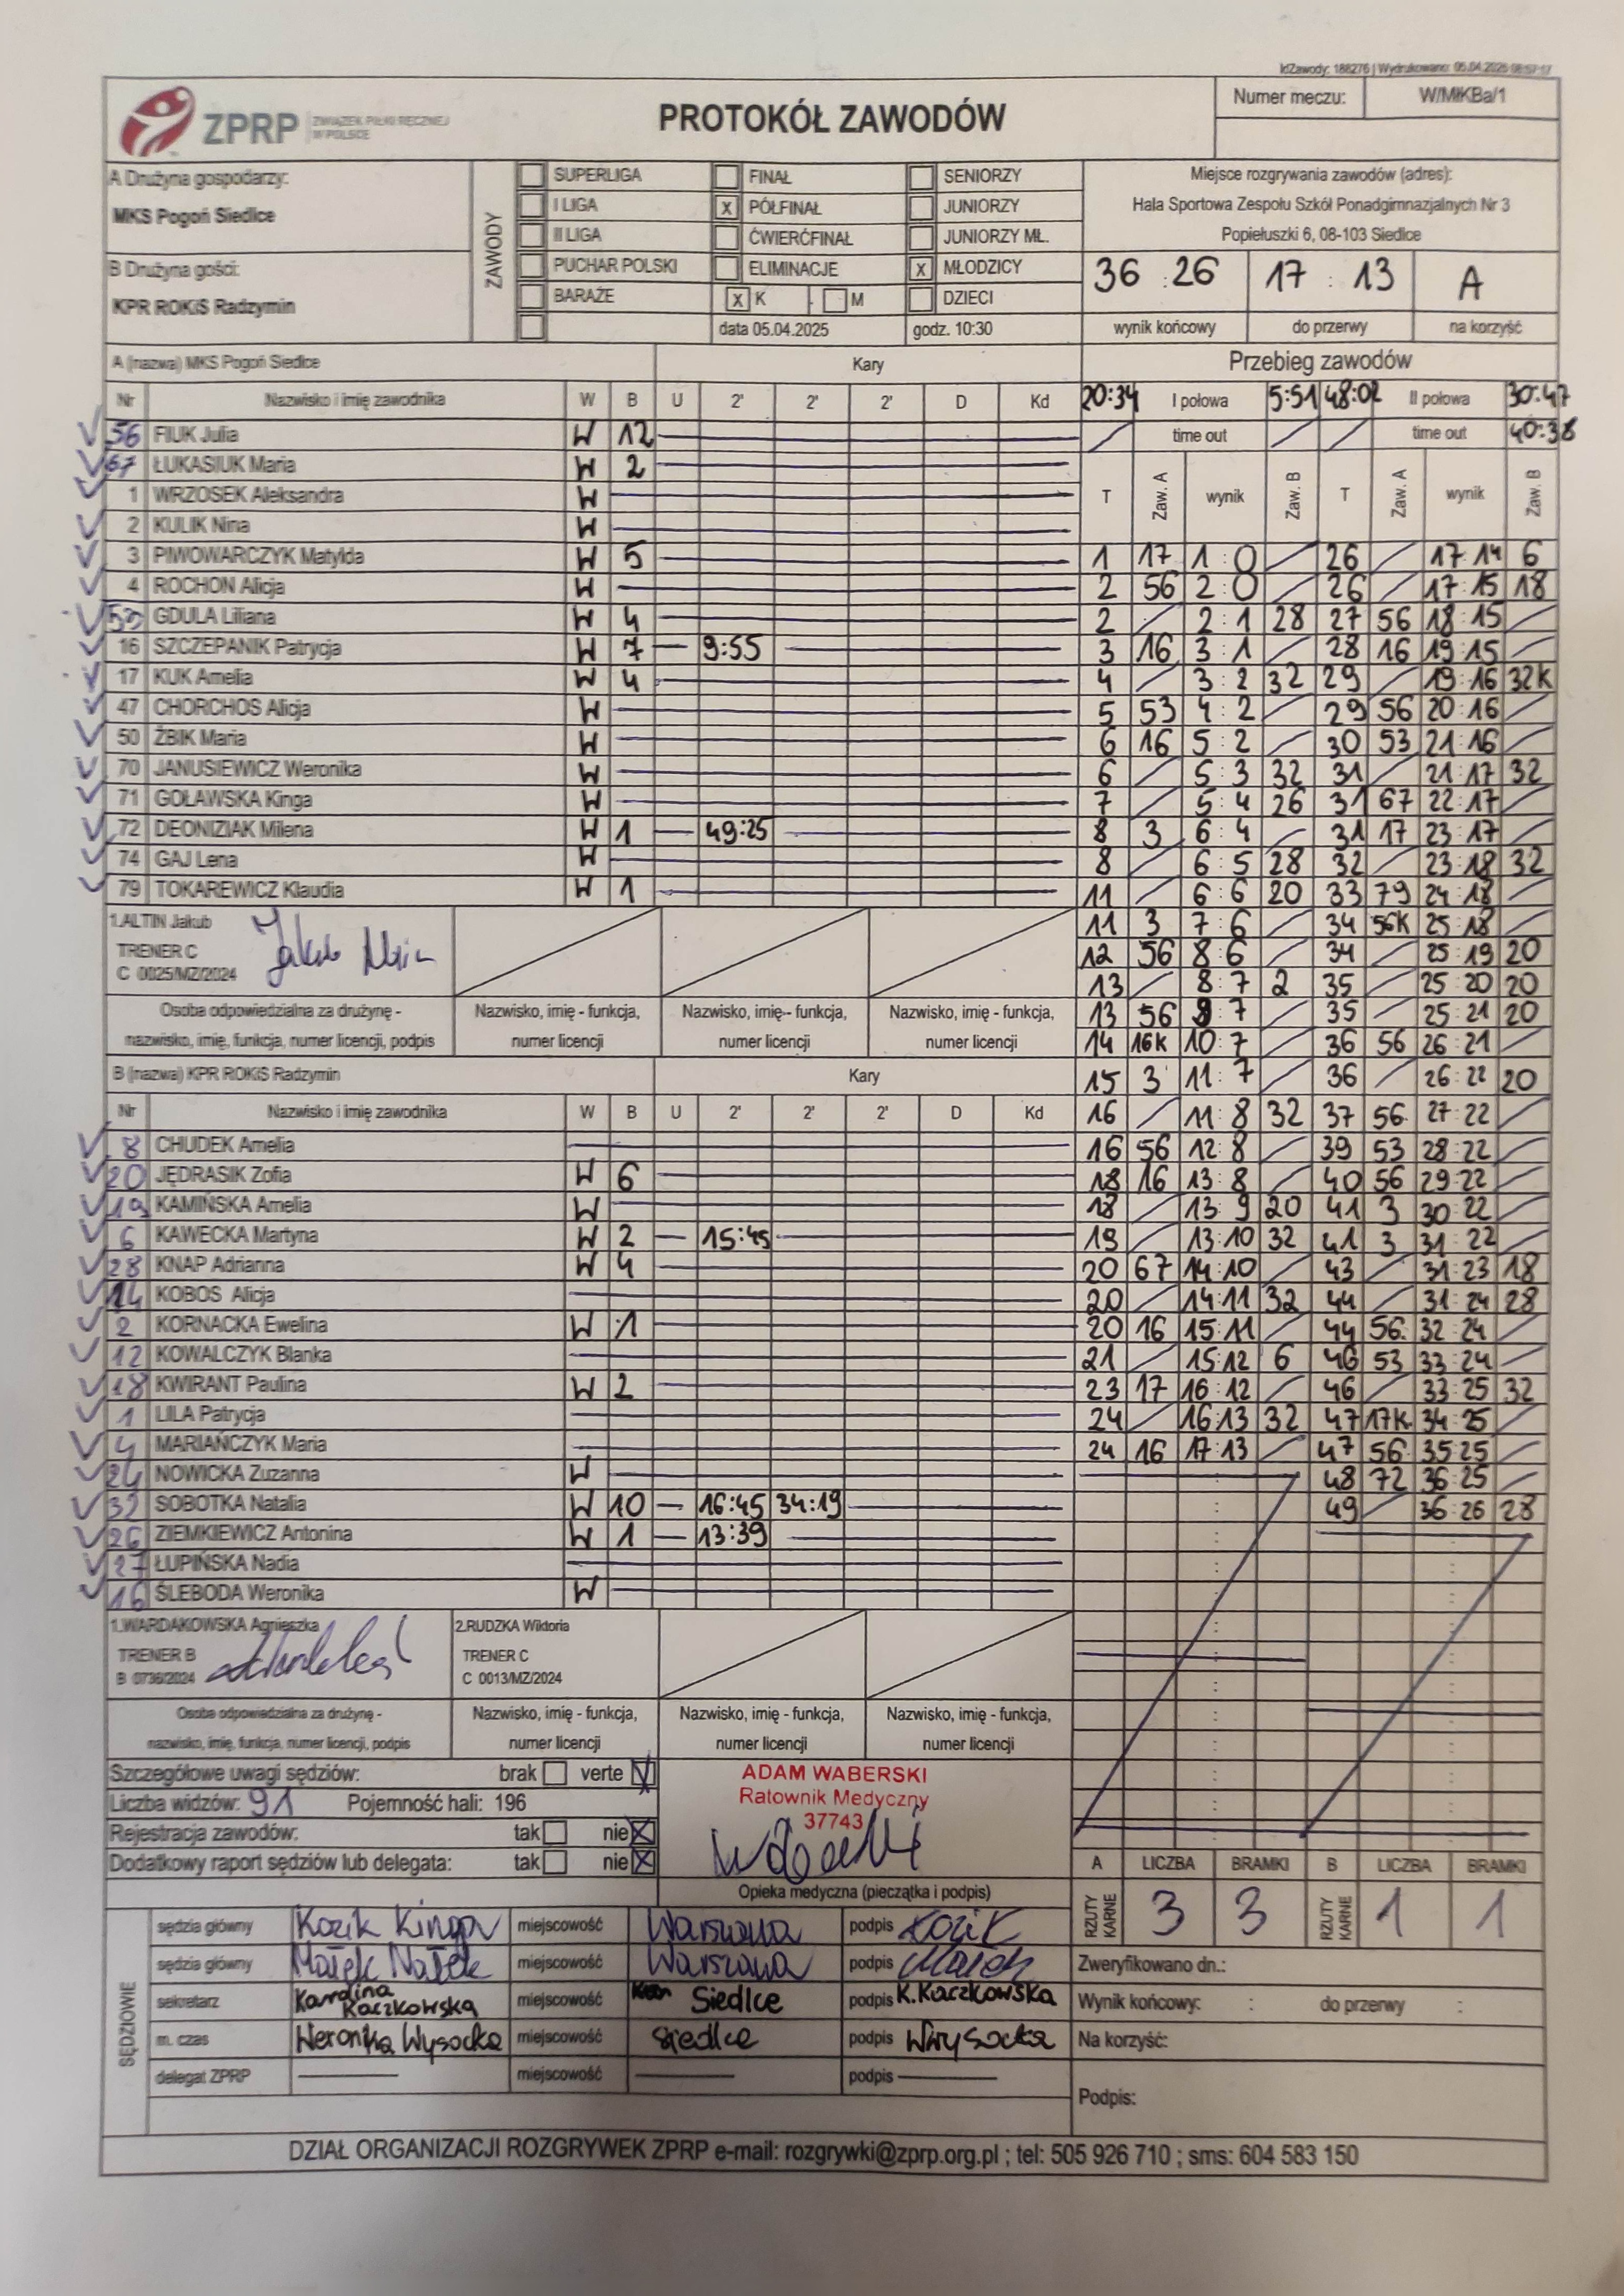 IdZawody: 188276 | Wydrukowano: 05.04.2025 08:57:17
ZPRP ZWIĄZEK PIŁKI RĘCZNEJ W POLSCE
PROTOKÓŁ ZAWODÓW
Numer meczu: W/MłKBa/1
A Drużyna gospodarzy:
MKS Pogoń Siedlce
B Drużyna gości:
KPR ROKiS Radzymin
ZAWODY
SUPERLIGA FINAŁ SENIORZY
I LIGA X PÓŁFINAŁ JUNIORZY
II LIGA ĆWIERĆFINAŁ JUNIORZY MŁ.
PUCHAR POLSKI ELIMINACJE X MŁODZICY
BARAŻE X K M DZIECI
data 05.04.2025 godz. 10:30
Miejsce rozgrywania zawodów (adres):
Hala Sportowa Zespołu Szkół Ponadgimnazjalnych Nr 3
Popiełuszki 6, 08-103 Siedlce
36 : 26 17 : 13 A
wynik końcowy do przerwy na korzyść
A (nazwa) MKS Pogoń Siedlce Kary
Nr Nazwisko i imię zawodnika W B U 2' 2' 2' D Kd
56 FIUK Julia W 12
67 ŁUKASIUK Maria W 2
1 WRZOSEK Aleksandra W
2 KULIK Nina W
3 PIWOWARCZYK Matylda W 5
4 ROCHON Alicja W
53 GDULA Liliana W 4
16 SZCZEPANIK Patrycja W 7 9:55
17 KUK Amelia W 4
47 CHORCHOS Alicja W
50 ŻBIK Maria W
70 JANUSIEWICZ Weronika W
71 GOŁAWSKA Kinga W
72 DEONIZIAK Milena W 1 49:25
74 GAJ Lena W
79 TOKAREWICZ Klaudia W 1
1.ALTIN Jakub
TRENER C
C 0025/MZ/2024
Osoba odpowiedzialna za drużynę - nazwisko, imię, funkcja, numer licencji, podpis
Nazwisko, imię - funkcja, numer licencji
Nazwisko, imię-- funkcja, numer licencji
Nazwisko, imię - funkcja, numer licencji
B (nazwa) KPR ROKiS Radzymin Kary
Nr Nazwisko i imię zawodnika W B U 2' 2' 2' D Kd
8 CHUDEK Amelia
20 JĘDRASIK Zofia W 6
19 KAMIŃSKA Amelia W
6 KAWECKA Martyna W 2 15:45
28 KNAP Adrianna W 4
14 KOBOS Alicja
2 KORNACKA Ewelina W 1
12 KOWALCZYK Blanka
18 KWIRANT Paulina W 2
1 LILA Patrycja
4 MARIAŃCZYK Maria
24 NOWICKA Zuzanna W
32 SOBOTKA Natalia W 10 16:45 34:19
26 ZIEMKIEWICZ Antonina W 1 13:39
27 ŁUPIŃSKA Nadia
16 ŚLEBODA Weronika W
1.WARDAKOWSKA Agnieszka
TRENER B
B 0736/2024
2.RUDZKA Wiktoria
TRENER C
C 0013/MZ/2024
Osoba odpowiedzialna za drużynę - nazwisko, imię, funkcja, numer licencji, podpis
Nazwisko, imię - funkcja, numer licencji
Nazwisko, imię - funkcja, numer licencji
Nazwisko, imię - funkcja, numer licencji
Przebieg zawodów
20:34 I połowa 5:51 48:02 II połowa 30:47
time out time out 40:38
T Zaw. A wynik Zaw. B T Zaw. A wynik Zaw. B
1 17 1:0 26 17:14 6
2 56 2:0 26 17:15 18
2 2:1 28 27 56 18:15
3 16 3:1 28 16 19:15
4 3:2 32 29 19:16 32K
5 53 4:2 29 56 20:16
6 16 5:2 30 53 21:16
6 5:3 32 31 21:17 32
7 5:4 26 31 67 22:17
8 3 6:4 31 17 23:17
8 6:5 28 32 23:18 32
11 6:6 20 33 79 24:18
11 3 7:6 34 56K 25:18
12 56 8:6 34 25:19 20
13 8:7 2 35 25:20 20
13 56 9:7 35 25:21 20
14 16K 10:7 36 56 26:21
15 3 11:7 36 26:22 20
16 11:8 32 37 56 27:22
16 56 12:8 39 53 28:22
18 16 13:8 40 56 29:22
18 13:9 20 41 3 30:22
19 13:10 32 41 3 31:22
20 67 14:10 43 31:23 18
20 14:11 32 44 31:24 28
20 16 15:11 44 56 32:24
21 15:12 6 46 53 33:24
23 17 16:12 46 33:25 32
24 16:13 32 47 17K 34:25
24 16 17:13 47 56 35:25
48 72 36:25
49 36:26 28
Szczegółowe uwagi sędziów: brak verte
Liczba widzów: 91 Pojemność hali: 196
Rejestracja zawodów: tak nie X
Dodatkowy raport sędziów lub delegata: tak nie X
ADAM WABERSKI
Ratownik Medyczny
37743
Opieka medyczna (pieczątka i podpis)
A LICZBA BRAMKI B LICZBA BRAMKI
RZUTY KARNE 3 3 RZUTY KARNE 1 1
SĘDZIOWIE
sędzia główny Kozik Kinga miejscowość Warszawa podpis Kozik
sędzia główny Małek miejscowość Warszawa podpis Małek
sekretarz Karolina Kaczkowska miejscowość Siedlce podpis K.Kaczkowska
m. czas Weronika Wysocka miejscowość Siedlce podpis WWysocka
delegat ZPRP miejscowość podpis
Zweryfikowano dn.:
Wynik końcowy: : do przerwy :
Na korzyść:
Podpis:
DZIAŁ ORGANIZACJI ROZGRYWEK ZPRP e-mail: rozgrywki@zprp.org.pl ; tel: 505 926 710 ; sms: 604 583 150